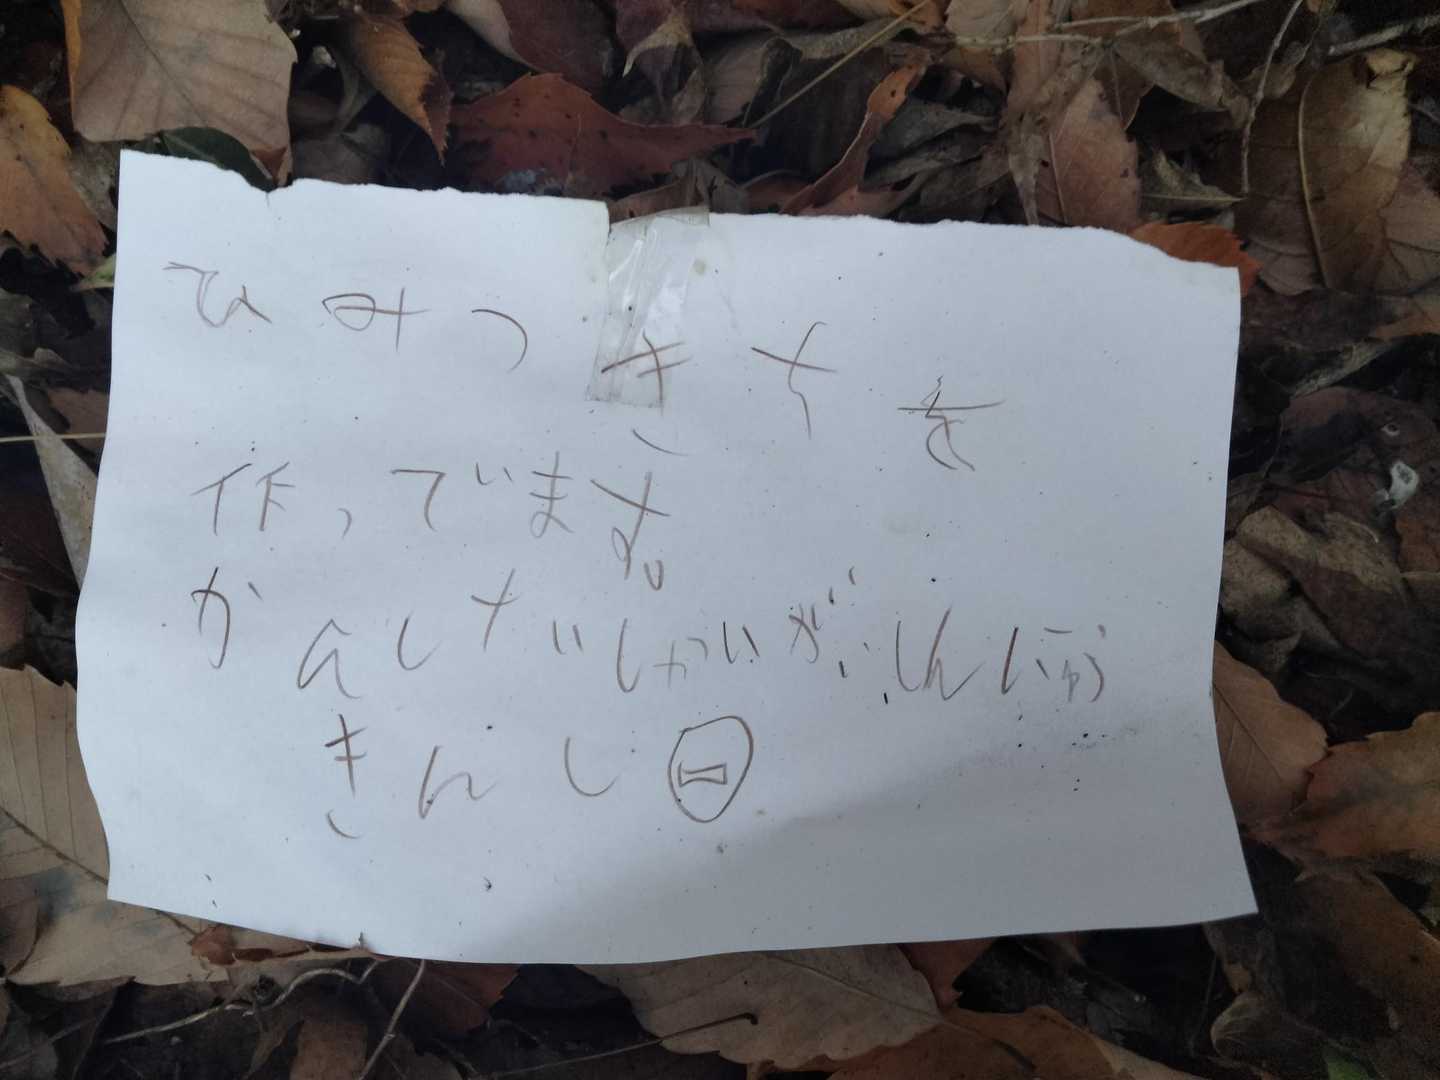 ひみつきちを
作っています
かんけいしゃいがいしんにゅう
きんし